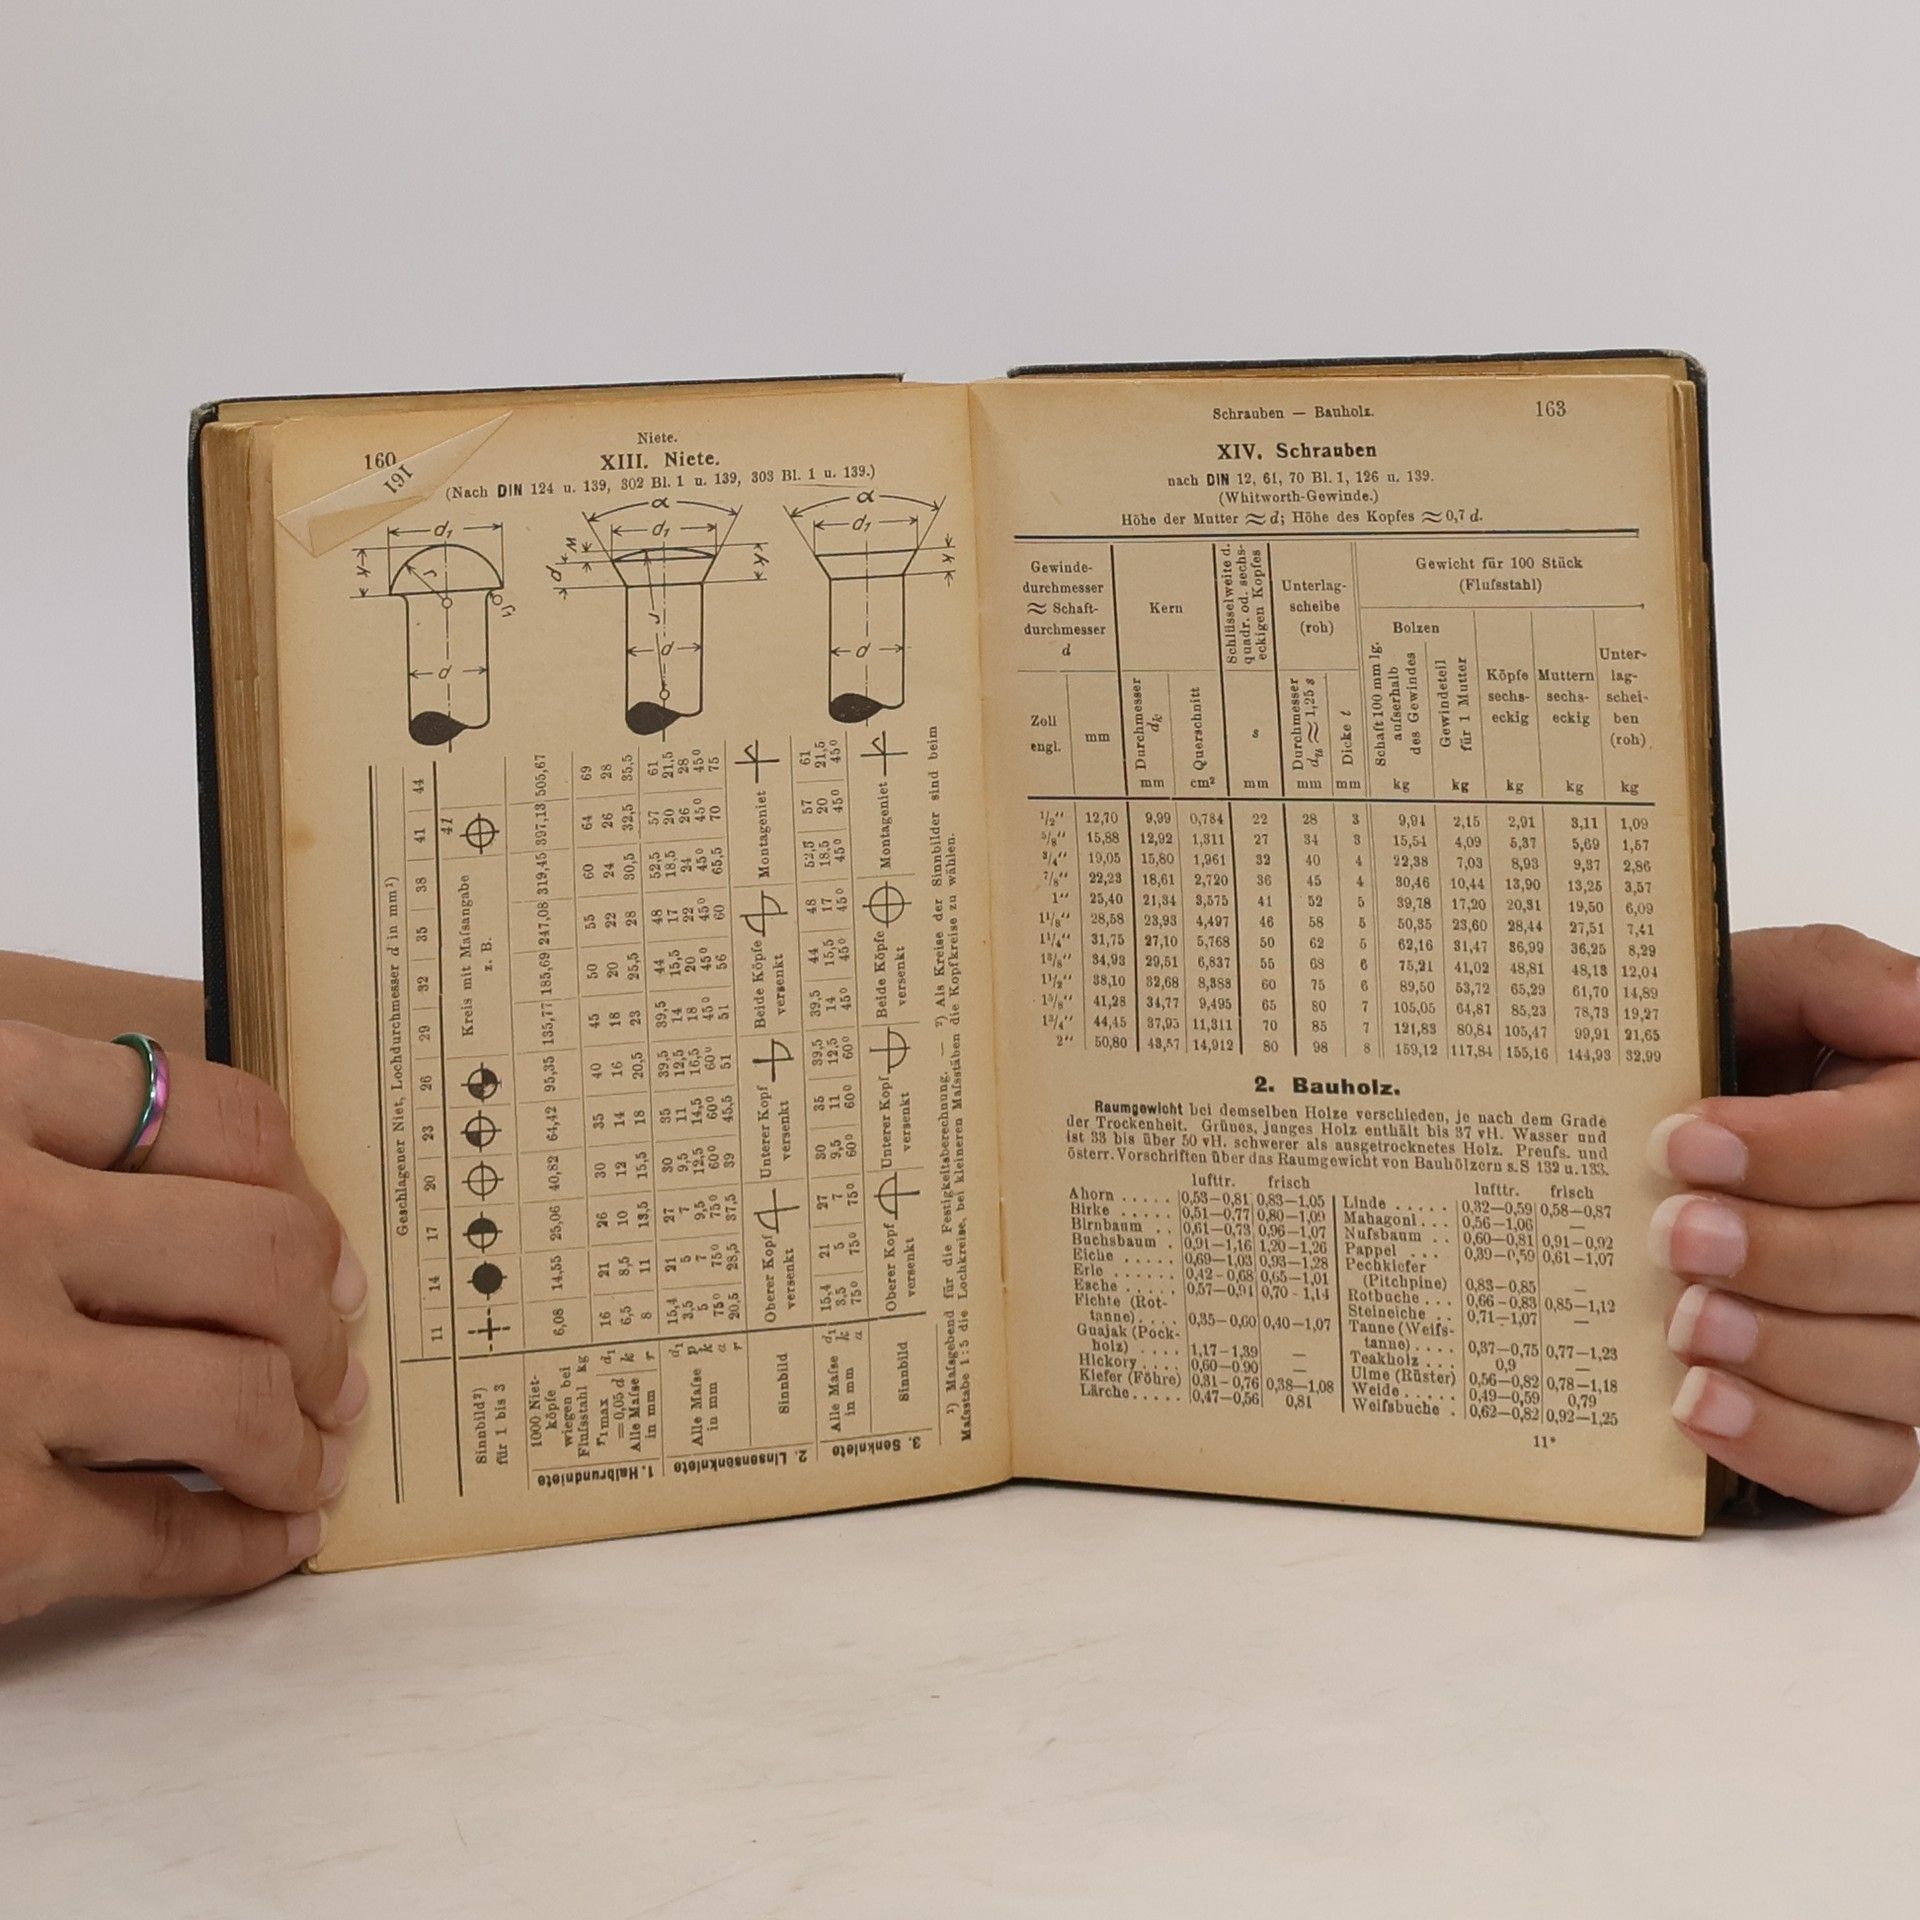 160
161
Niete.
XIII. Niete.
(Nach DIN 124 u. 139, 302 Bl. 1 u. 139, 303 Bl. 1 u. 139.)
d₁ α d₁ α d₁
k r r₁ d w k r k
d d d
Geschlagener Niet, Lochdurchmesser d in mm¹) 11 14 17 20 23 26 29 32 35 38 41 44
Sinnbild²) für 1 bis 3 Kreis mit Maſsangabe z. B. 41
1. Halbrundniete
1000 Nietköpfe wiegen bei Fluſsstahl kg 6,08 14,55 25,06 40,82 64,42 95,35 135,77 185,69 247,08 319,45 397,13 505,67
r₁max = 0,05 d
Alle Maſse in mm
d₁ 16 21 26 30 35 40 45 50 55 60 64 69
k 6,5 8,5 10 12 14 16 18 20 22 24 26 28
r 8 11 13,5 15,5 18 20,5 23 25,5 28 30,5 32,5 35,5
2. Linsensenkniete
Alle Maſse in mm
d₁ 15,4 21 27 30 35 39,5 39,5 44 48 52,5 57 61
p 3,5 5 7 9,5 11 12,5 14 15,5 17 18,5 20 21,5
k 5 7 9,5 12,5 14,5 16,5 18 20 22 24 26 28
α 75⁰ 75⁰ 75⁰ 60⁰ 60⁰ 60⁰ 45⁰ 45⁰ 45⁰ 45⁰ 45⁰ 45⁰
r 20,5 28,5 37,5 39 45,5 51 51 56 60 65,5 70 75
Sinnbild Oberer Kopf versenkt Unterer Kopf versenkt Beide Köpfe versenkt Montageniet
3. Senkniete
Alle Maſse in mm
d₁ 15,4 21 27 30 35 39,5 39,5 44 48 52,5 57 61
k 3,5 5 7 9,5 11 12,5 14 15,5 17 18,5 20 21,5
α 75⁰ 75⁰ 75⁰ 60⁰ 60⁰ 60⁰ 45⁰ 45⁰ 45⁰ 45⁰ 45⁰ 45⁰
Sinnbild Oberer Kopf versenkt Unterer Kopf versenkt Beide Köpfe versenkt Montageniet
¹) Maſsgebend für die Festigkeitsberechnung. — ²) Als Kreise der Sinnbilder sind beim
Maſsstabe 1 : 5 die Lochkreise, bei kleineren Maſsstäben die Kopfkreise zu wählen.
Schrauben — Bauholz. 163
XIV. Schrauben
nach DIN 12, 61, 70 Bl. 1, 126 u. 139.
(Whitworth-Gewinde.)
Höhe der Mutter ≈ d; Höhe des Kopfes ≈ 0,7 d.
Gewinde-
durchmesser
≈ Schaft-
durchmesser
d
Kern
Schlüsselweite d.
quadr. od. sechs-
eckigen Kopfes
Unterlag-
scheibe
(roh)
Gewicht für 100 Stück
(Fluſsstahl)
Bolzen
Zoll
engl.
mm
Durchmesser
dk
mm
Querschnitt
cm²
s
mm
Durchmesser
du ≈ 1,25 s
mm
Dicke t
mm
Schaft 100 mm lg.
auſserhalb
des Gewindes
kg
Gewindeteil
für 1 Mutter
kg
Köpfe
sechs-
eckig
kg
Muttern
sechs-
eckig
kg
Unter-
lag-
schei-
ben
(roh)
kg
1/2″ 12,70 9,99 0,784 22 28 3 9,94 2,15 2,91 3,11 1,09
5/8″ 15,88 12,92 1,311 27 34 3 15,54 4,09 5,37 5,69 1,57
3/4″ 19,05 15,80 1,961 32 40 4 22,38 7,03 8,93 9,37 2,86
7/8″ 22,23 18,61 2,720 36 45 4 30,46 10,44 13,90 13,25 3,57
1″ 25,40 21,34 3,575 41 52 5 39,78 17,20 20,31 19,50 6,09
1 1/8″ 28,58 23,93 4,497 46 58 5 50,35 23,60 28,44 27,51 7,41
1 1/4″ 31,75 27,10 5,768 50 62 5 62,16 31,47 36,99 36,25 8,29
1 3/8″ 34,93 29,51 6,837 55 68 6 75,21 41,02 48,81 48,13 12,04
1 1/2″ 38,10 32,68 8,388 60 75 6 89,50 53,72 65,29 61,70 14,89
1 5/8″ 41,28 34,77 9,495 65 80 7 105,05 64,87 85,23 78,73 19,27
1 3/4″ 44,45 37,95 11,311 70 85 7 121,83 80,84 105,47 99,91 21,65
2″ 50,80 43,57 14,912 80 98 8 159,12 117,84 155,16 144,93 32,99
2. Bauholz.
Raumgewicht bei demselben Holze verschieden, je nach dem Grade
der Trockenheit. Grünes, junges Holz enthält bis 37 vH. Wasser und
ist 33 bis über 50 vH. schwerer als ausgetrocknetes Holz. Preuſs. und
österr. Vorschriften über das Raumgewicht von Bauhölzern s. S 132 u. 133.
lufttr. frisch
Ahorn ..... 0,53—0,81 0,83—1,05
Birke ..... 0,51—0,77 0,80—1,09
Birnbaum .. 0,61—0,73 0,96—1,07
Buchsbaum . 0,91—1,16 1,20—1,26
Eiche ..... 0,69—1,03 0,93—1,28
Erle ...... 0,42—0,68 0,65—1,01
Esche ..... 0,57—0,94 0,70—1,14
Fichte (Rot-
tanne) .... 0,35—0,60 0,40—1,07
Guajak (Pock-
holz) .... 1,17—1,39 —
Hickory .... 0,60—0,90 —
Kiefer (Föhre) 0,31—0,76 0,38—1,08
Lärche ..... 0,47—0,56 0,81
lufttr. frisch
Linde ..... 0,32—0,59 0,58—0,87
Mahagoni ... 0,56—1,06 —
Nuſsbaum .. 0,60—0,81 0,91—0,92
Pappel .... 0,39—0,59 0,61—1,07
Pechkiefer
(Pitchpine) 0,83—0,85 —
Rotbuche ... 0,66—0,83 0,85—1,12
Steineiche .. 0,71—1,07 —
Tanne (Weiſs-
tanne) .... 0,37—0,75 0,77—1,23
Teakholz ... 0,9 —
Ulme (Rüster) 0,56—0,82 0,78—1,18
Weide ..... 0,49—0,59 0,79
Weiſsbuche . 0,62—0,82 0,92—1,25
11*